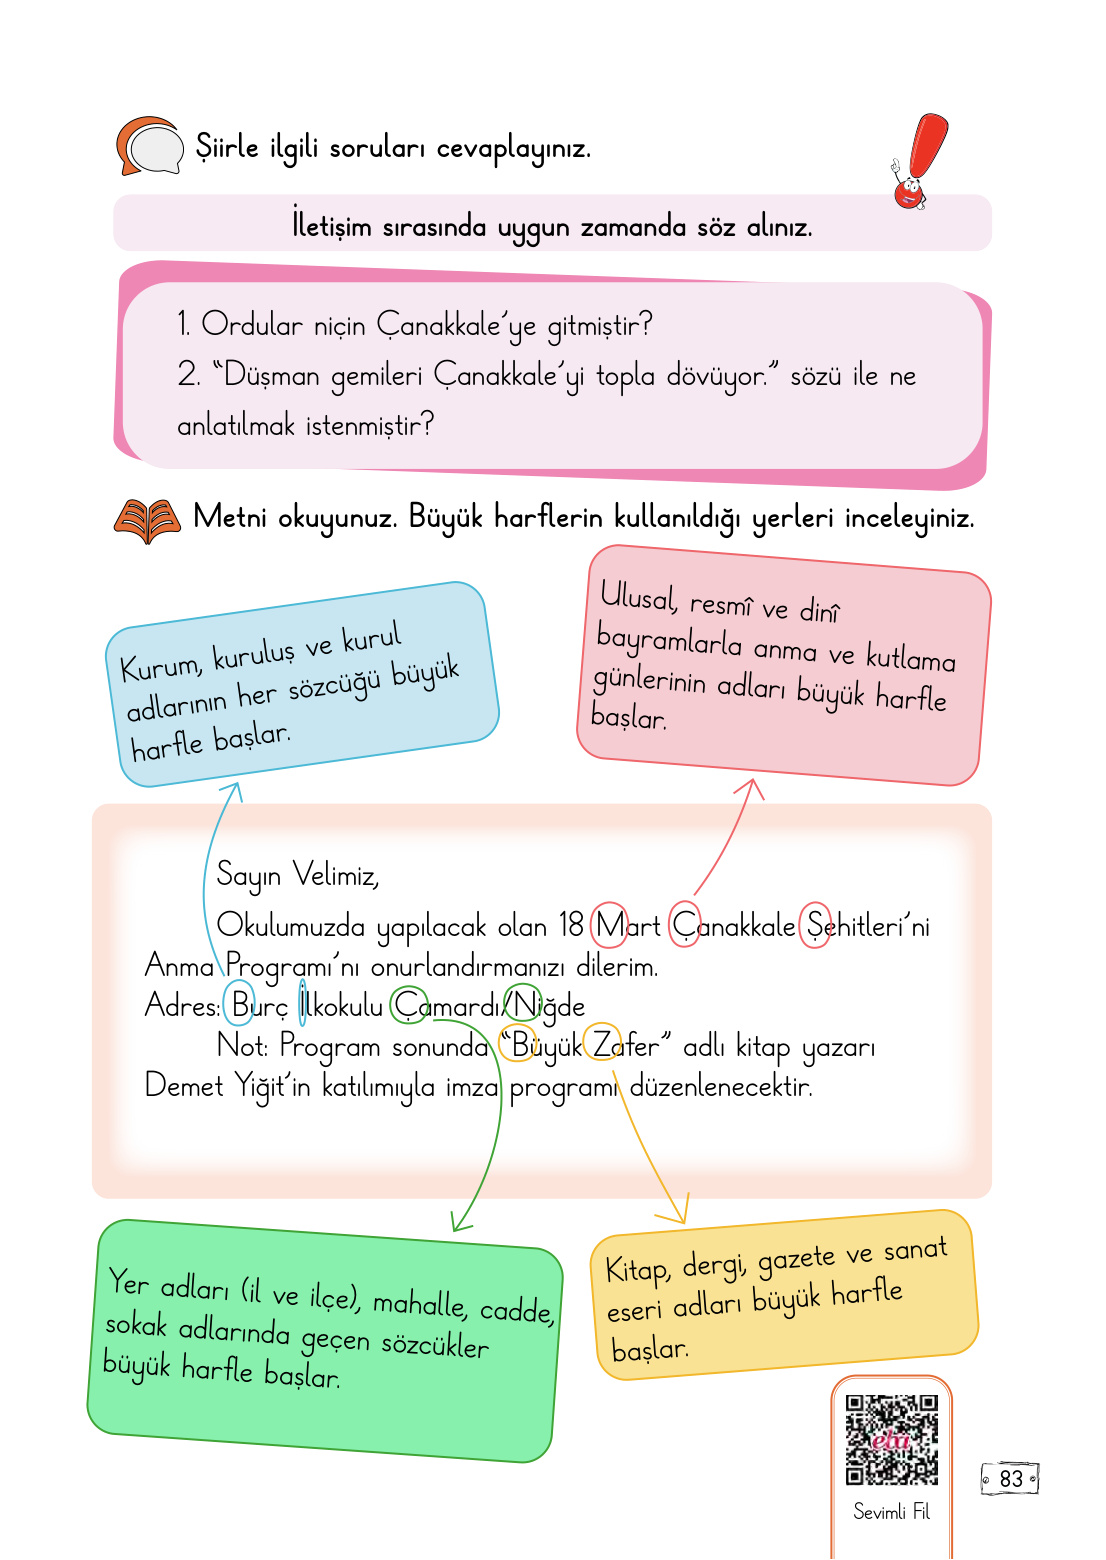 Şiirle ilgili soruları cevaplayınız.
İletişim sırasında uygun zamanda söz alınız.
1. Ordular niçin Çanakkale’ye gitmiştir?
2. “Düşman gemileri Çanakkale’yi topla dövüyor.” sözü ile ne
anlatılmak istenmiştir?
Metni okuyunuz. Büyük harflerin kullanıldığı yerleri inceleyiniz.
Kurum, kuruluş ve kurul
adlarının her sözcüğü büyük
harfle başlar.
Ulusal, resmî ve dinî
bayramlarla anma ve kutlama
günlerinin adları büyük harfle
başlar.
Sayın Velimiz,
Okulumuzda yapılacak olan 18 Mart Çanakkale Şehitleri’ni
Anma Programı’nı onurlandırmanızı dilerim.
Adres: Burç İlkokulu Çamardı/Niğde
Not: Program sonunda “Büyük Zafer” adlı kitap yazarı
Demet Yiğit’in katılımıyla imza programı düzenlenecektir.
Yer adları (il ve ilçe), mahalle, cadde,
sokak adlarında geçen sözcükler
büyük harfle başlar.
Kitap, dergi, gazete ve sanat
eseri adları büyük harfle
başlar.
eba
Sevimli Fil
83